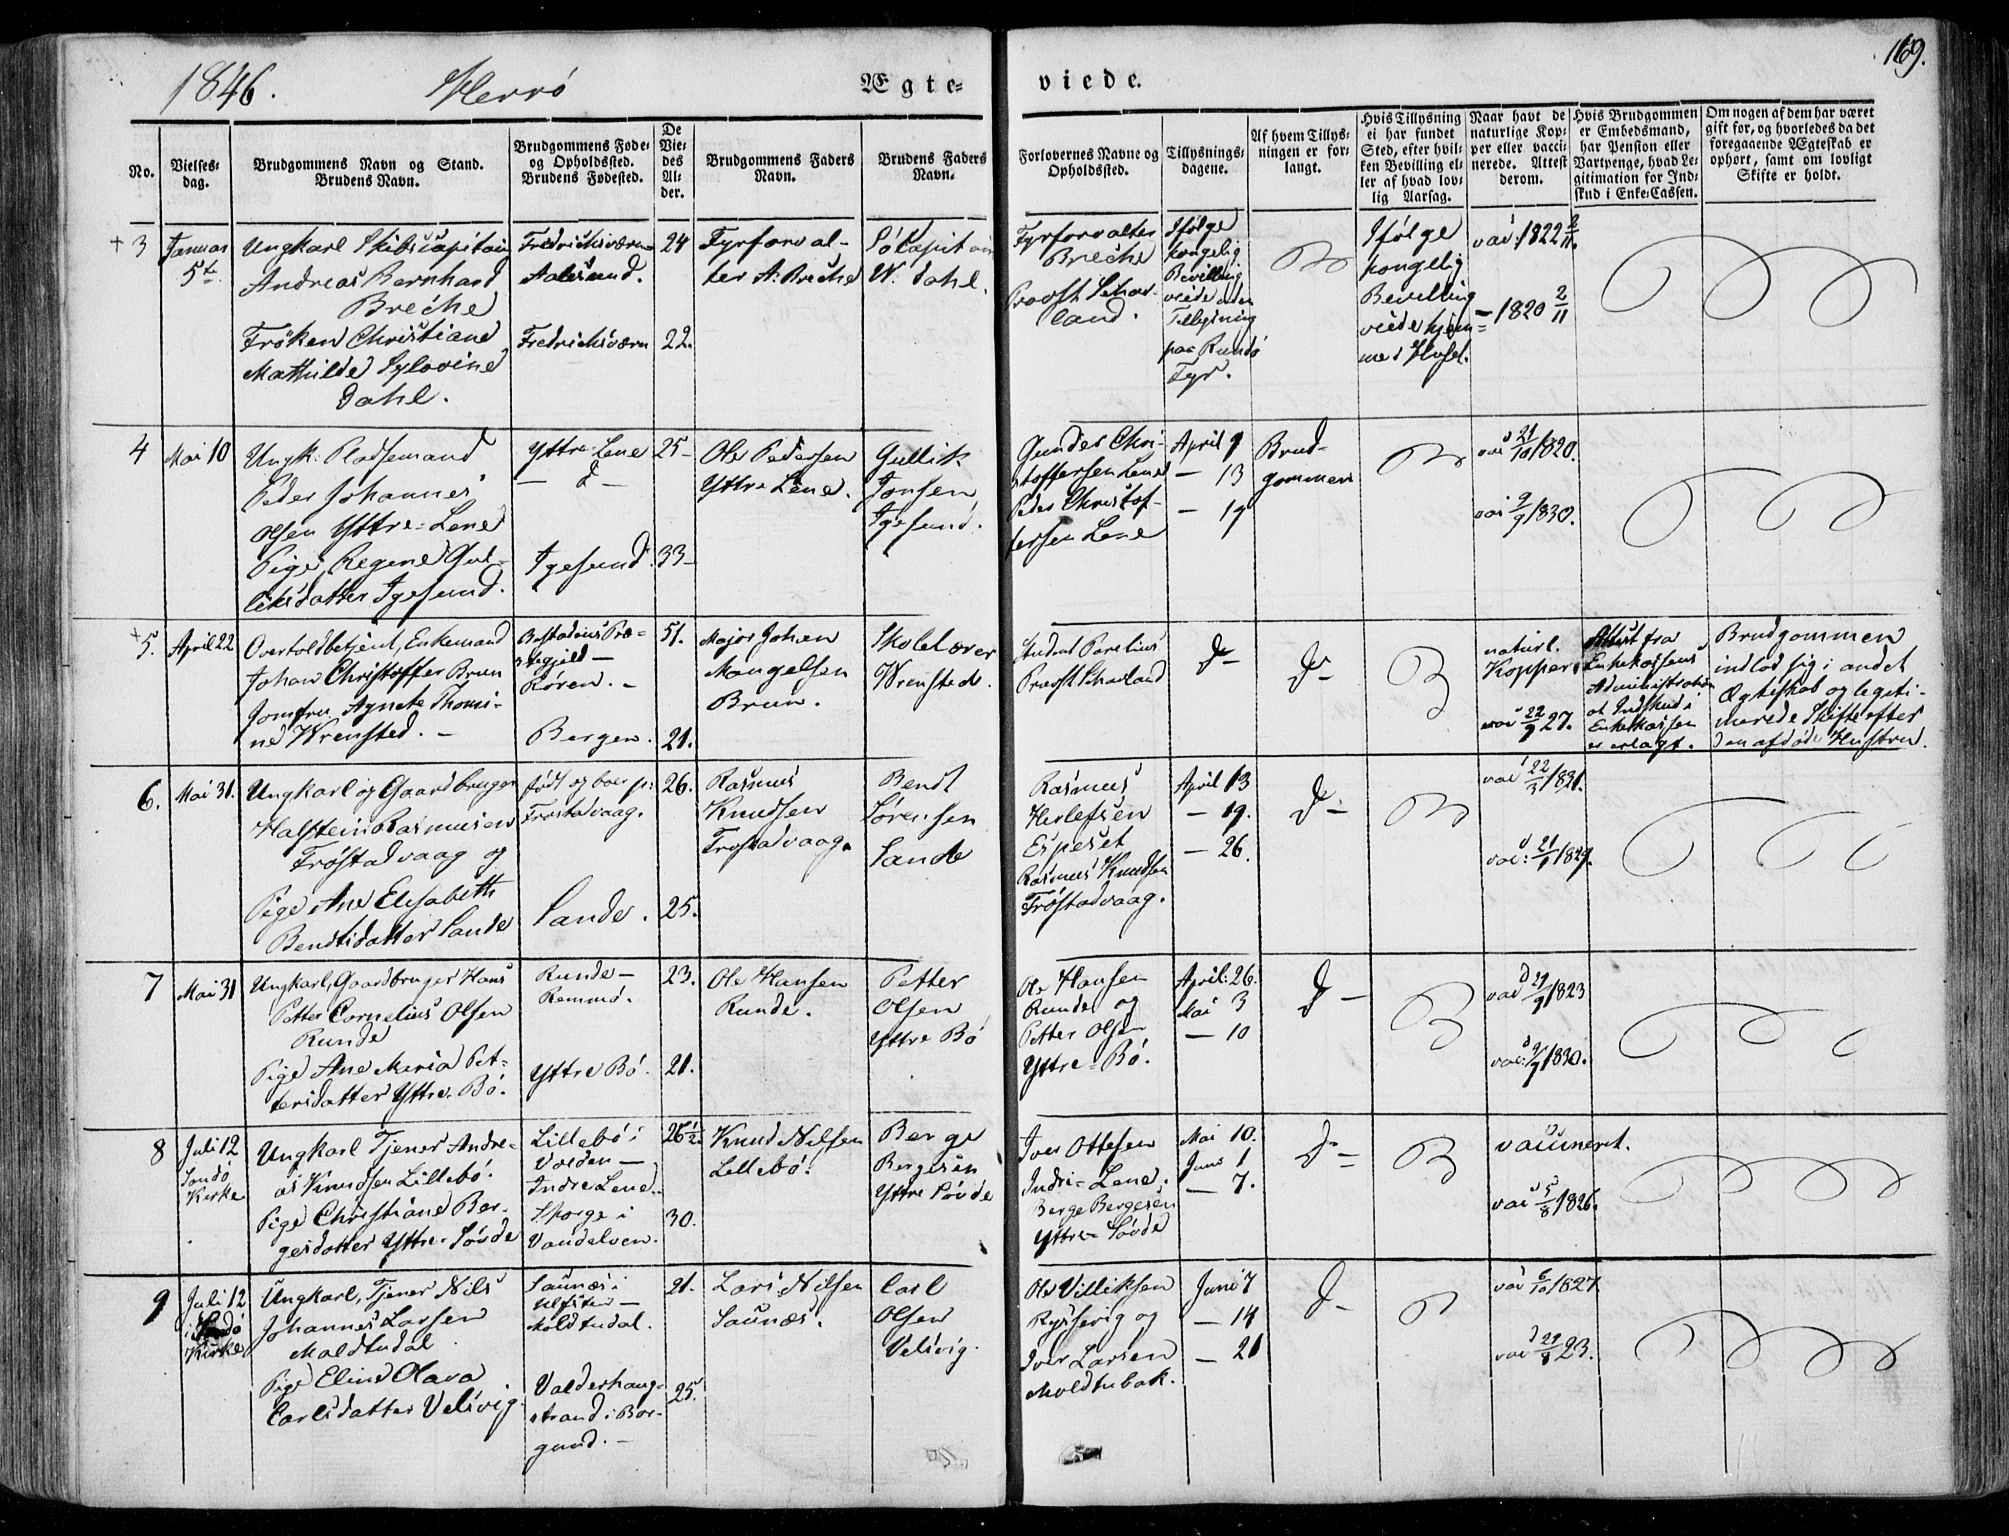 1846.
Herrö
Ægte-
viede.
169.
No.
Vielses-
dag.
Brudgommens Navn og Stand.
Brudens Navn.
Brudgommens Føde-
og Opholdssted.
Brudens Fødested.
De
Vie-
des
Al-
der.
Brudgommens Faders
Navn.
Brudens Faders
Navn.
Forlovernes Navne og
Opholdssted.
Tillysnings-
dagene.
Af hvem Tillys-
ningen er for-
langt.
Hvis Tillysning
ei har fundet
Sted, efter hvil-
ken Bevilling el-
ler af hvad lov-
lig Aarsag.
Naar havt de
naturlige Kop-
per eller vacci-
nerede. Attest
derom.
Hvis Brudgommen
er Embedsmand,
har Pension eller
Vartpenge, hvad Le-
gitimation for Ind-
skud i Enke-Cassen.
Om nogen af dem har været
gift før, og hvorledes da det
foregaaende Ægteskab er
ophørt, samt om lovligt
Skifte er holdt.
+ 3
Januar
5te
Ungkarl Skibscapitain
Andreas Bernhard
Breche
Fröken Christiane
Mathilde Sylovine
Dahl.
Fredrichsværn
Aalesund.
Fredrichsværn
24
22.
Fyrforval-
ter A. Breche
Søcapitain
W. Dahl.
Fyrforvalter
Breche
Provst
land.
Ifølge
kongelig
Bevilling
viede uden
Tillysning
paa Rundö
Fyr.
Ifølge
kongelig
Bevilling
viede hjem-
me i Huset.
vac: 1822 2/11.
- 1820 2/11
4
Mai 10
Ungk: Pladsemand
Peder Johannes
Olsen Yttre-Lene
Pige Regine Gul-
liksdatter Igesund.
Yttre-Lene
- d -
Igesund
25-
33-
Ole Pedersen
Yttre Lene.
Gullik
Jonsen
Igesund.
Gunder Chri-
stoffersen Lene
Peder Christof-
fersen Lene
April 9
- 13
- 19
Brud-
gommen
vac 21/10 1820.
vac 9/9 1830.
+5.
April 22
Overtoldbetjent, Enkemand
Johan Christoffer Brun
Jomfru Agnete Thomi-
ne Wrensted. -
Præ-
stegjeld -
Røren. -
Bergen.
51.
21.
Major Johan
Mangelsen
Brun.
Skolelærer
Wrensted.
Student Parelius
Provst
d -
d -
naturl.
Kopper
vac 22/9 27.
Attest fra
Enkekassens
Administration
at Indskud i
Enkekassen
er erlagt.
Brudgommen
indlod sig i andet
Ægteskab og legeti-
merede Skifte efter
den afdøde Hustru.
6.
Mai 31.
Ungkarl og Gaardbruger
Halstein Rasmusen
Fröstadvaag og
Pige Ane Elisabeth
Bendtsdatter Sande
født og boer p:
Frøstadvaag.
Sande.
26.
25.
Rasmus
Knudsen
Frostadvaag.
Bendt
Sørensen
Sande
Rasmus
Herlefsen
Espeset
Rasmus Knudsen
Fröstadvaag.
April 13
- 19.
- 26.
d -
vac 22/3 1821.
vac: 21/1 1829.
7
Mai 31
Ungkarl, Gaardbruger Hans
Petter Cornelius Olsen
Runde
Pige Ane Maria Pet-
tersdatter Yttre-Bö.
Runde -
Remmö.
Yttre Bö.
23.
21.
Ole Hansen
Runde.
Petter
Olsen
Yttre Bö
Ole Hansen
Runde og
Petter Olsen
Yttre-Bö.
April: 26.
Mai 3
- 10
d -
vac 29/9 1823
vac: 9/9 1830.
8
Juli 12
Sandö
Kirke
Ungkarl Tjener Andre-
as Knudsen Lillebö.
Pige Christiane Ber-
gesdatter Yttre-Søvde
Lillebö i
Volden -
Indre Lene.
Skorge i
Vandelven.
26 1/2
30.
Knud Nilsen
Lillebö.
Berge
Bergesen
Yttre Søvde
Iver Ottesen
Indre-Lene.
Berge Bergesen
Yttre-Søvde
Mai 10.
Juni 1
- 7.
d -
vaccineret.
vac 5/8 1826.
9
Juli 12
i Sandö
Kirke
Ungkarl, Tjener Nils
Johannes Larsen
Moldtudal
Pige Eline Olava
Carlsdatter Velsvig.
Saunæs i
Ulfsten -
Moldtudal.
Valderhaug-
strand i Bor-
gund. -
21.
25.
Lars Nilsen
Saunæs.
Carl
Olsen
Velsvig.
Ole Villiksen
Rysfevig og
Iver Larsen
Moldtubak.
Juni 7
- 14
- 21
d -
vac 6/10 1827
vac 29/8 23.